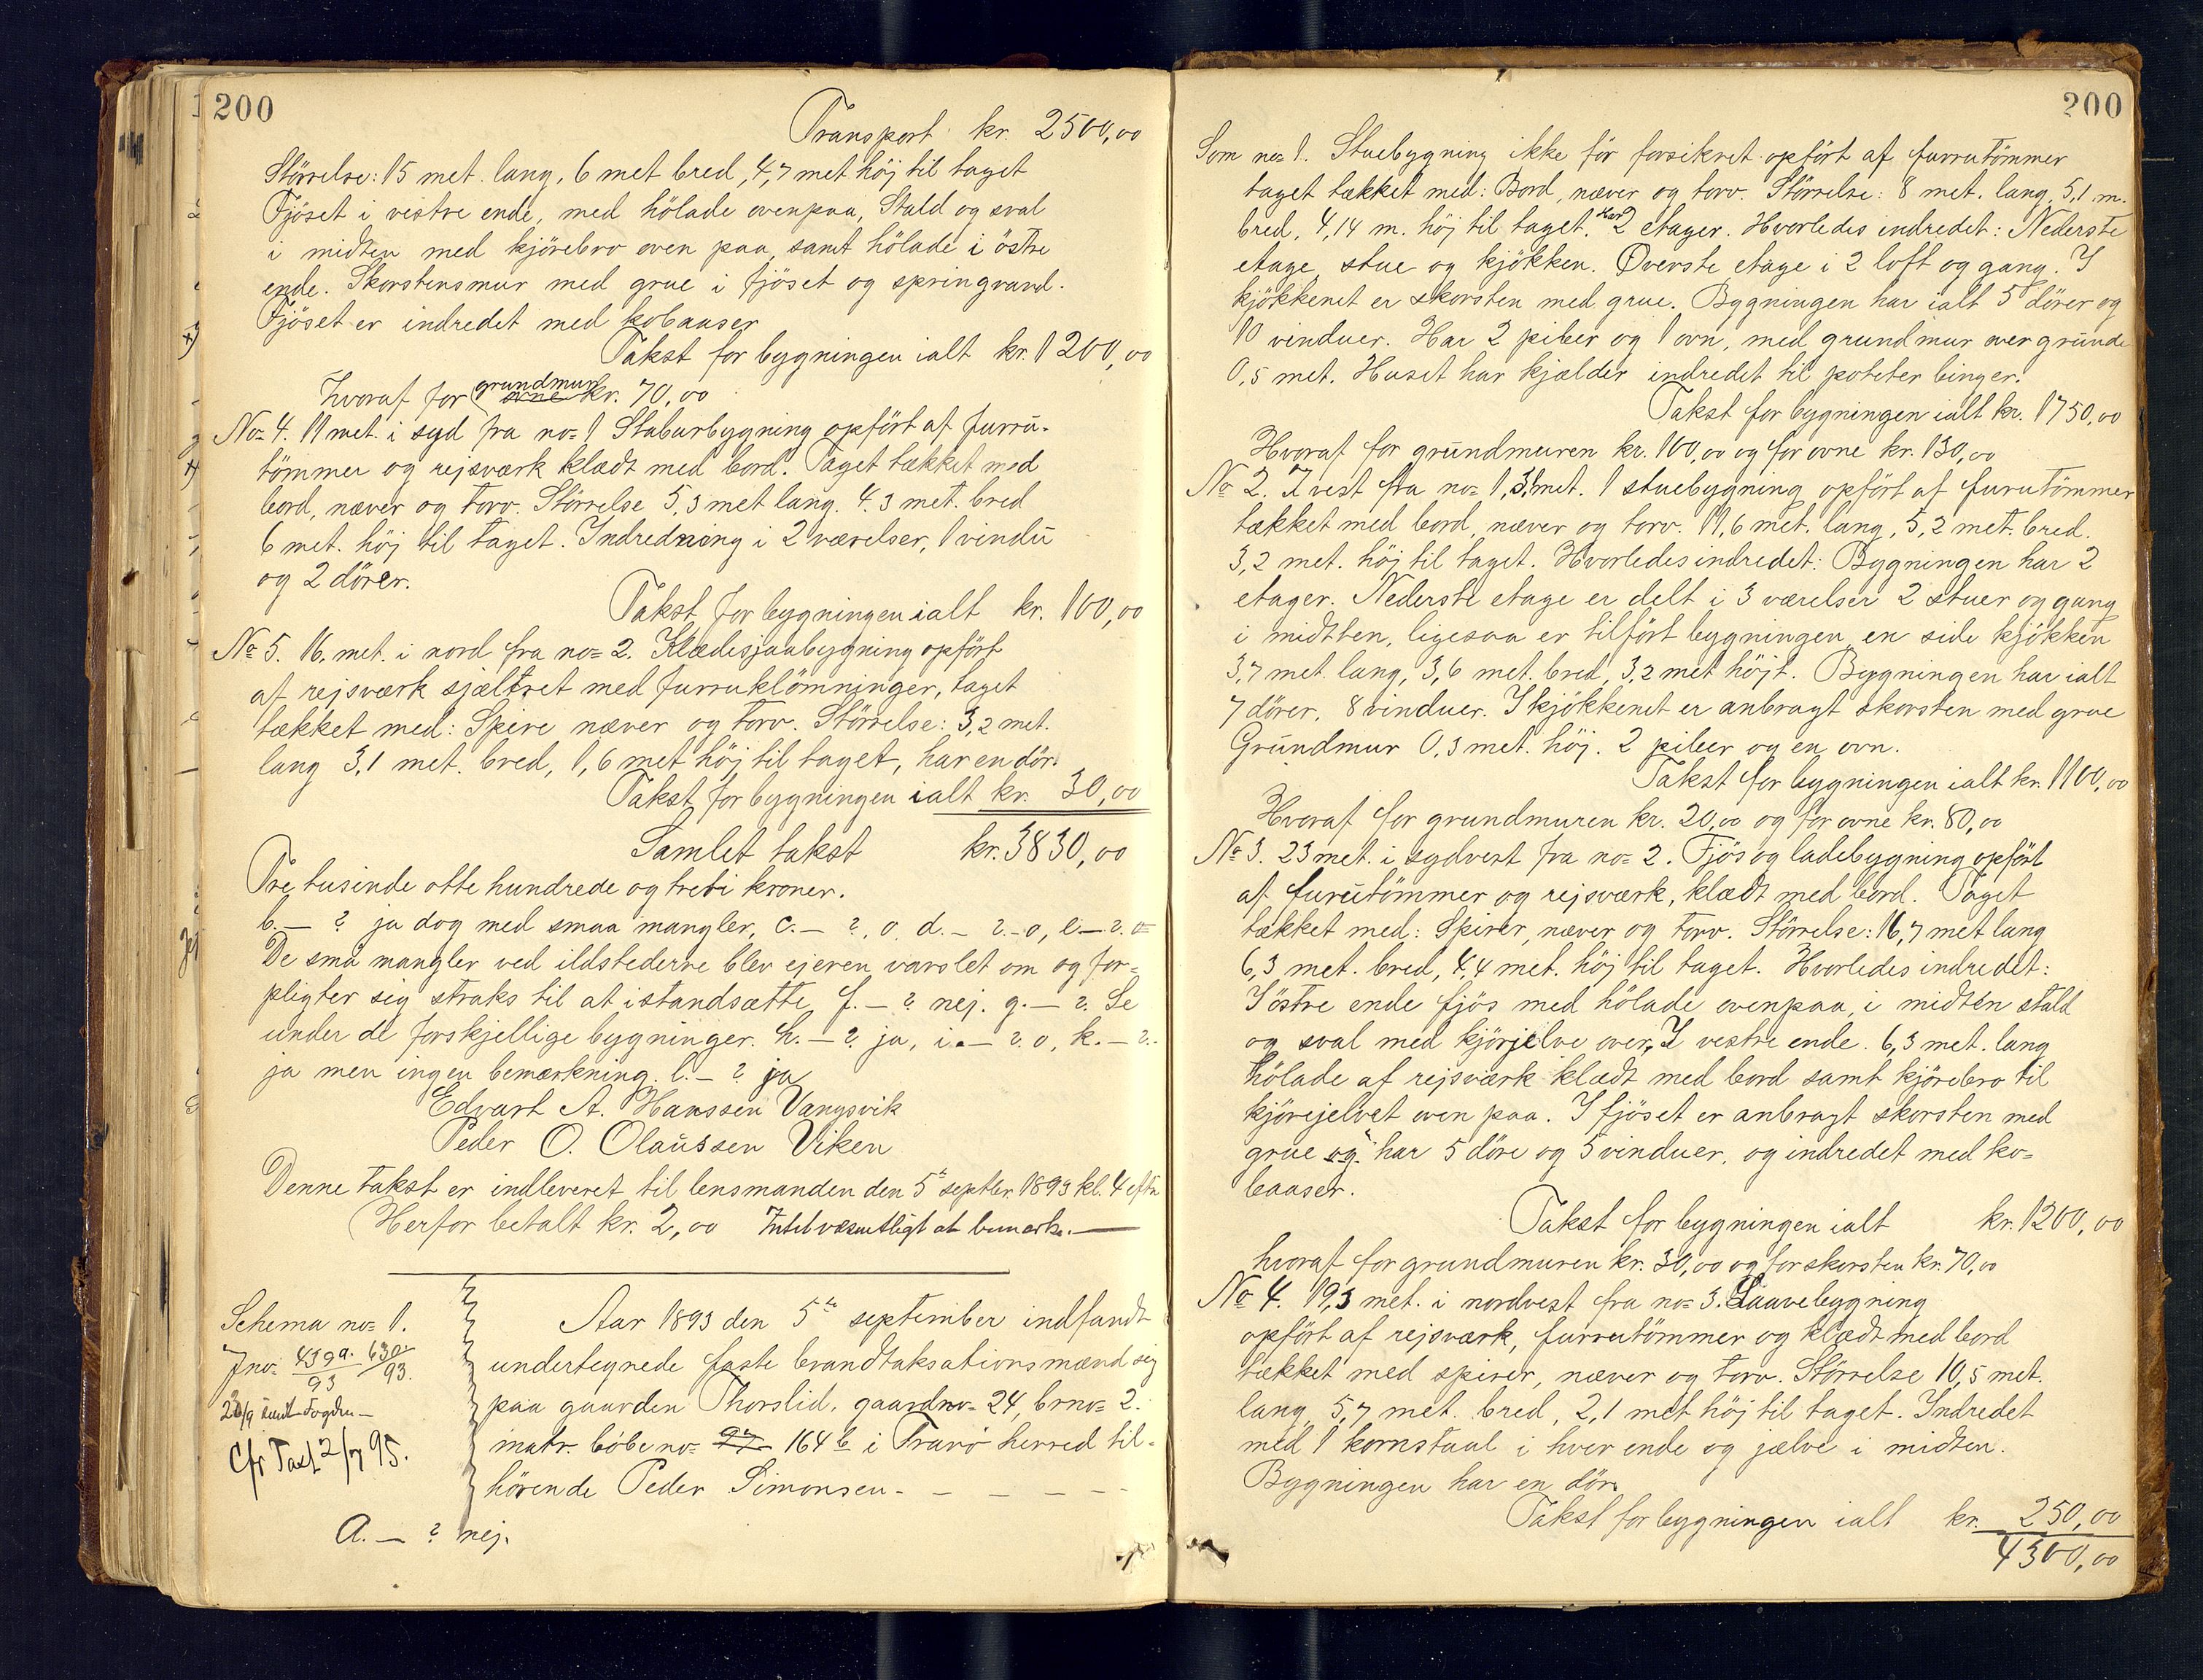 200
Transport kr. 2500,00
Störrelse: 15 met. lang, 6 met bred, 4,7 met höj til taget
Fjöset i vestre ende, med hölade ovenpaa, Stald og sval
i midten med kjörebro oven paa, samt hölade i östre
ende. Skorstensmur med grue i fjöset og springvand.
Fjöset er indredet med kobaaser
Takst for bygningen ialt kr. 1200,00
Hvoraf for grundmur ovne kr. 70,00
No= 4. 11 met. i syd fra no= 1 Staburbygning opfört af furru-
tömmer og rejsværk klædt med bord. Taget tækket med
bord, næver og torv. Störrelse 5,3 met lang. 4.3 met. bred
6 met. höj til taget. Indredning i 2 værelser, 1 vindu
og 2 dörer.
Takst for bygningen ialt kr. 100,00
No 5. 16. met. i nord fra no= 2. Klædesjaabygning opfört
af rejsværk sjæltret med furruklömninger, taget
tækket med: Spire næver og torv. Störrelse: 3,2 met.
lang 3,1 met. bred, 1,6 met höj til taget, har en dör.
Takst for bygningen ialt kr. 30,00
Samlet takst kr. 3830,00
Tre tusinde otte hundrede og tretti kroner.
b. — ? ja dog med smaa mangler, c. — ?, o d. — ? - o, e — ?. o=
De små mangler ved ildstederne blev ejeren varslet om og for=
pligter sig straks til at istandsætte f. — ? nej. g. — ? Se
under de forskjellige bygninger. h. — ? ja, i. — ? o, k. — ?.
ja men ingen bemærkning. l. — ? ja
Edvart A. Hanssen Vangsvik
Peder O. Olaussen Viken
Denne takst er indleveret til lensmanden den 5te septbr 1893 kl. 4 eftm
Herfor betalt kr. 2,00 Intet væsentligt at bemærke. —
Schema no= 1.
Jno: 439a./93 630/93.
Cfr Taxt 2/7 95.
Aar 1893 den 5te september indfandt
undertegnede faste brandtaksationsmænd sig
paa gaarden Thorslid, gaardno= 24, brno= 2.
matr. löbeno= 164 b i Tranö herred til-
hörende Peder Simonsen - — — — —
A. — ? nej.
200
Som no= 1. Stuebygning ikke för forsikret opfört af furrutömmer
taget tækket med: Bord, næver og torv. Störrelse: 8 met. lang, 5,1 m.
bred, 4,14 m. höj til taget. Har 2 etager. Hvorledes indredet: Nederste
etage, stue og kjökken. Överste etage i 2 loft og gang. I
kjökkenet er skorsten med grue. Bygningen har ialt 5 dörer og
10 vinduer. Har 2 piber og 1 ovn, med grundmur over grunde
0,5 met. Huset har kjælder indredet til poteter binger.
Takst for bygningen ialt kr. 1750,00
Hvoraf for grundmuren kr. 100,00 og for ovne kr. 130,00
No 2. I vest fra no= 1, 3,1 met. 1 stuebygning opfört af furutömmer
tækket med bord, næver og torv. 11,6 met. lang, 5,2 met. bred.
3,2 met. höj til taget. Hvorledes indredet: Bygningen har 2
etager. Nederste etage er delt i 3 værelser 2 stuer og gang
i midtten, ligesaa er tilfört bygningen en side kjökken
3,7 met. lang, 3,6 met. bred, 3,2 met höjt. Bygningen har ialt
7 dörer, 8 vinduer. I kjökkenet er anbragt skorsten med grue
Grundmur 0,3 met. höj. 2 piber og en ovn.
Takst for bygningen ialt kr. 1100,00
Hvoraf for grundmuren kr. 20,00 og for ovne kr. 80,00
No 3. 23 met. i sydvest fra no= 2. Fjös og ladebygning opfört
af furutömmer og rejsværk, klædt med bord. Taget
tækket med: Spirer, næver og torv. Störrelse: 16,7 met lang
6,3 met. bred, 4,4 met. höj til taget. Hvorledes indredet:
I östre ende fjös med hölade ovenpaa, i midten stald
og sval med kjörjelve over, I vestre ende. 6,3 met. lang
hölade af rejsværk klædt med bord samt kjörebro til
kjörejelvet oven paa. I fjöset er anbragt skorsten med
grue og har 5 döre og 5 vinduer, og indredet med ko=
baaser.
Takst for bygningen ialt kr. 1200,00
hvoraf for grundmuren kr. 30,00 og for skorsten kr. 70,00
No 4. 19,3 met. i nordvest fra no= 3. Laavebygning
opfört af rejsværk, furrutömmer og klædt med bord
tækket med spirer, næver og torv. Störrelse 10,5 met.
lang, 5,7 met. bred, 2,1 met höj til taget. Indredet
med 1 kornstaal i hver ende og jælve i midten.
Bygningen har en dör.
Takst for bygningen ialt kr. 250,00
4300,00